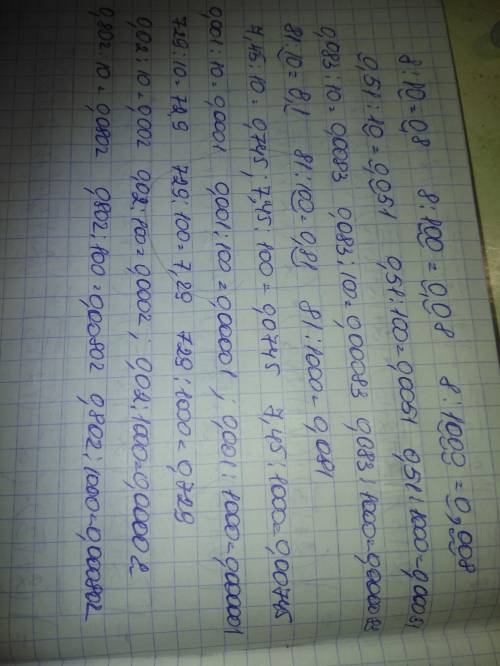 8:10=0,8 8:100=0,08 8:1000=0,008
0,51:10=0,051 0,51:100=0,0051 0,51:1000=0,00051
0,083:10=0,0083 0,083:100=0,00083 0,083:1000=0,000083
81:10=8,1 81:100=0,81 81:1000=0,081
7,45:10=0,745; 7,45:100=0,0745 7,45:1000=0,00745
0,001:10=0,0001 0,001:100=0,00001; 0,001:1000=0,000001
729:10=72,9 729:100=7,29 729:1000=0,729
0,02:10=0,002 0,02:100=0,0002; 0,02:1000=0,00002
0,802:10=0,0802 0,802:100=0,00802 0,802:1000=0,000802